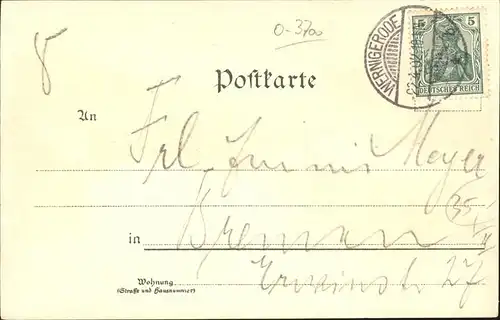 8
0-3700
WERNIGERODE
5 5
DEUTSCHES REICH
Postkarte
An
Frl. Meyer
35
in Bremen
27
Wohnung
(Straße und Hausnummer)